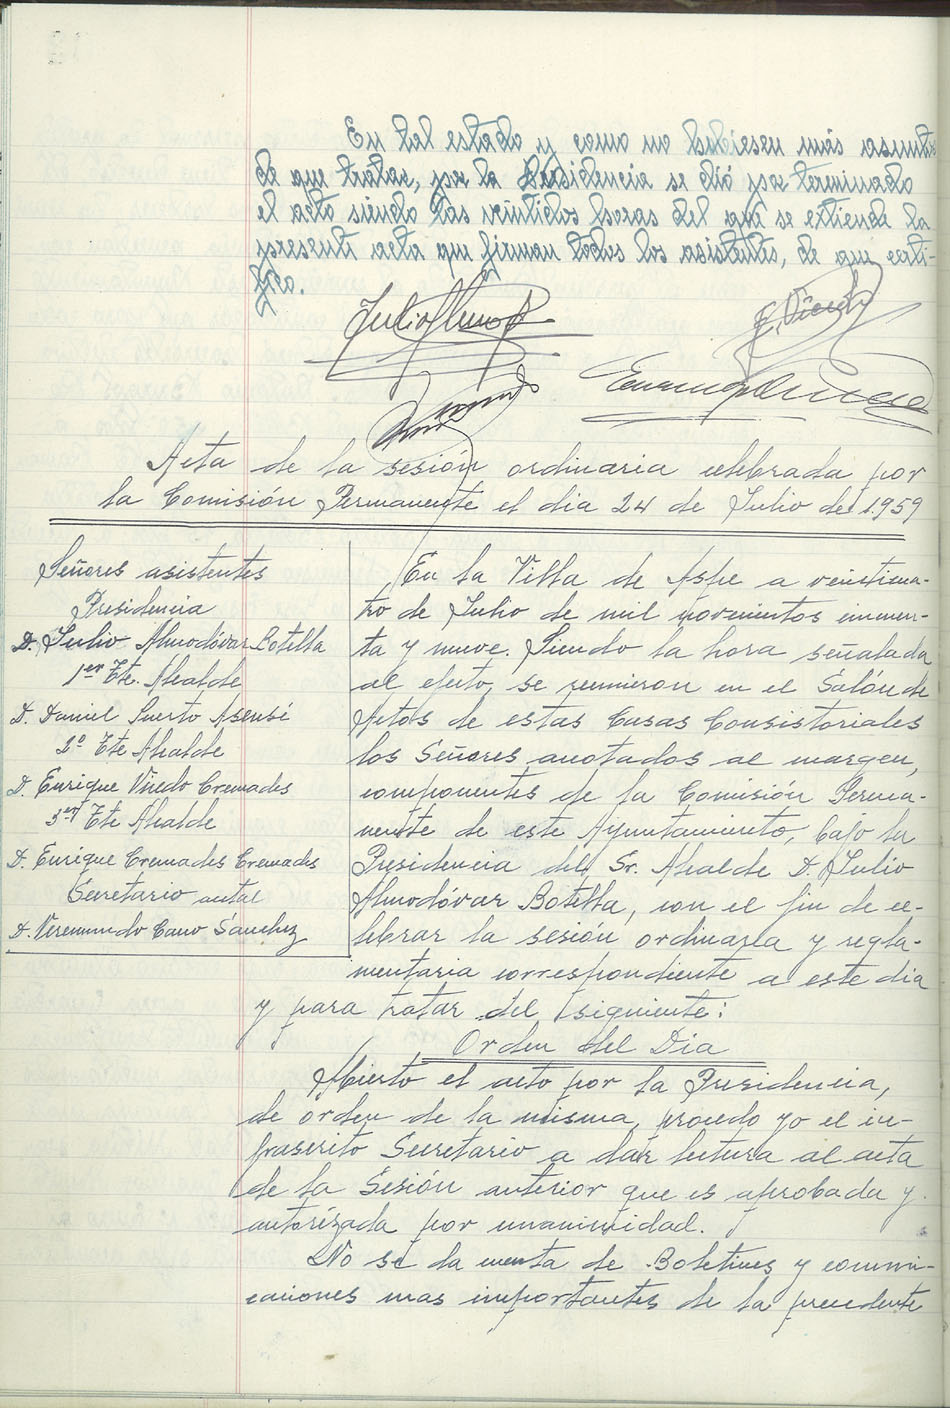 En tal estado y como no hubiesen más asuntos
de que tratar, por la Presidencia se dió por terminado
el acto siendo las veintidos horas del que se extiende la
presente acta que firman todos los asistentes, de que certi-
fico.
Julio Almod
E. Viñedo
Acta de la sesión ordinaria celebrada por
la Comisión Permanente el dia 24 de Julio de 1.959
Señores asistentes
Presidencia
D. Julio Almodóvar Botella
1er Tte. Alcalde
D. Daniel Puerto Asensi
2º Tte Alcalde
D. Enrique Viñedo Cremades
3er Tte Alcalde
D. Enrique Cremades Cremades
Secretario actal
D. Veremundo Cano Sánchez
En la Villa de Aspe a veinticua-
tro de Julio de mil novecientos cincuen-
ta y nueve. Siendo la hora señalada
al efecto, se reunieron en el Salón de
Actos de estas Casas Consistoriales
los Señores anotados al margen,
componentes de la Comisión Perma-
nente de este Ayuntamiento, bajo la
Presidencia del Sr. Alcalde D. Julio
Almodóvar Botella, con el fin de ce-
lebrar la sesión ordinaria y regla-
mentaria correspondiente a este dia
y para tratar del siguiente:
Orden del Dia
Abierto el acto por la Presidencia,
de orden de la misma, procedo yo el in-
frascrito Secretario a dar lectura al acta
de la Sesión anterior que es aprobada y
autorizada por unanimidad.
No se da cuenta de Boletines y comuni-
caciones mas importantes de la precedente